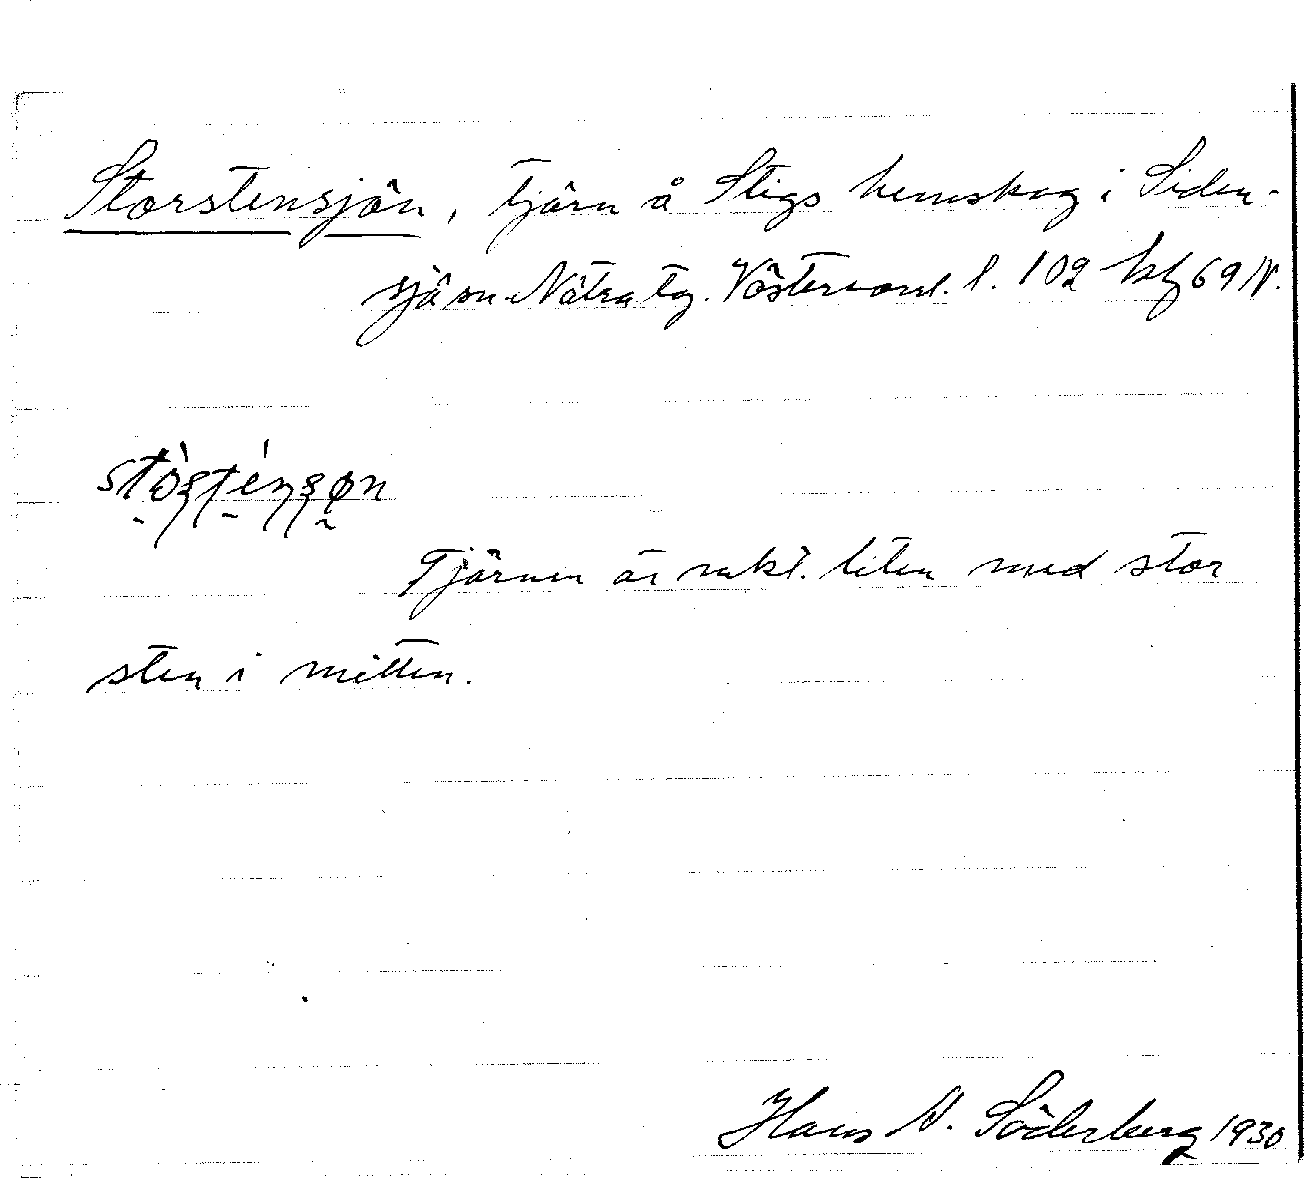 Storstensjön, tjärn å Stigs hemskog i Siden-
sjö sn. Nätra tg. Västernorrl. l. 102 kbl 69 N.
Tjärnen är mkt. liten med stor
sten i mitten.
Hans V. Söderberg 1930